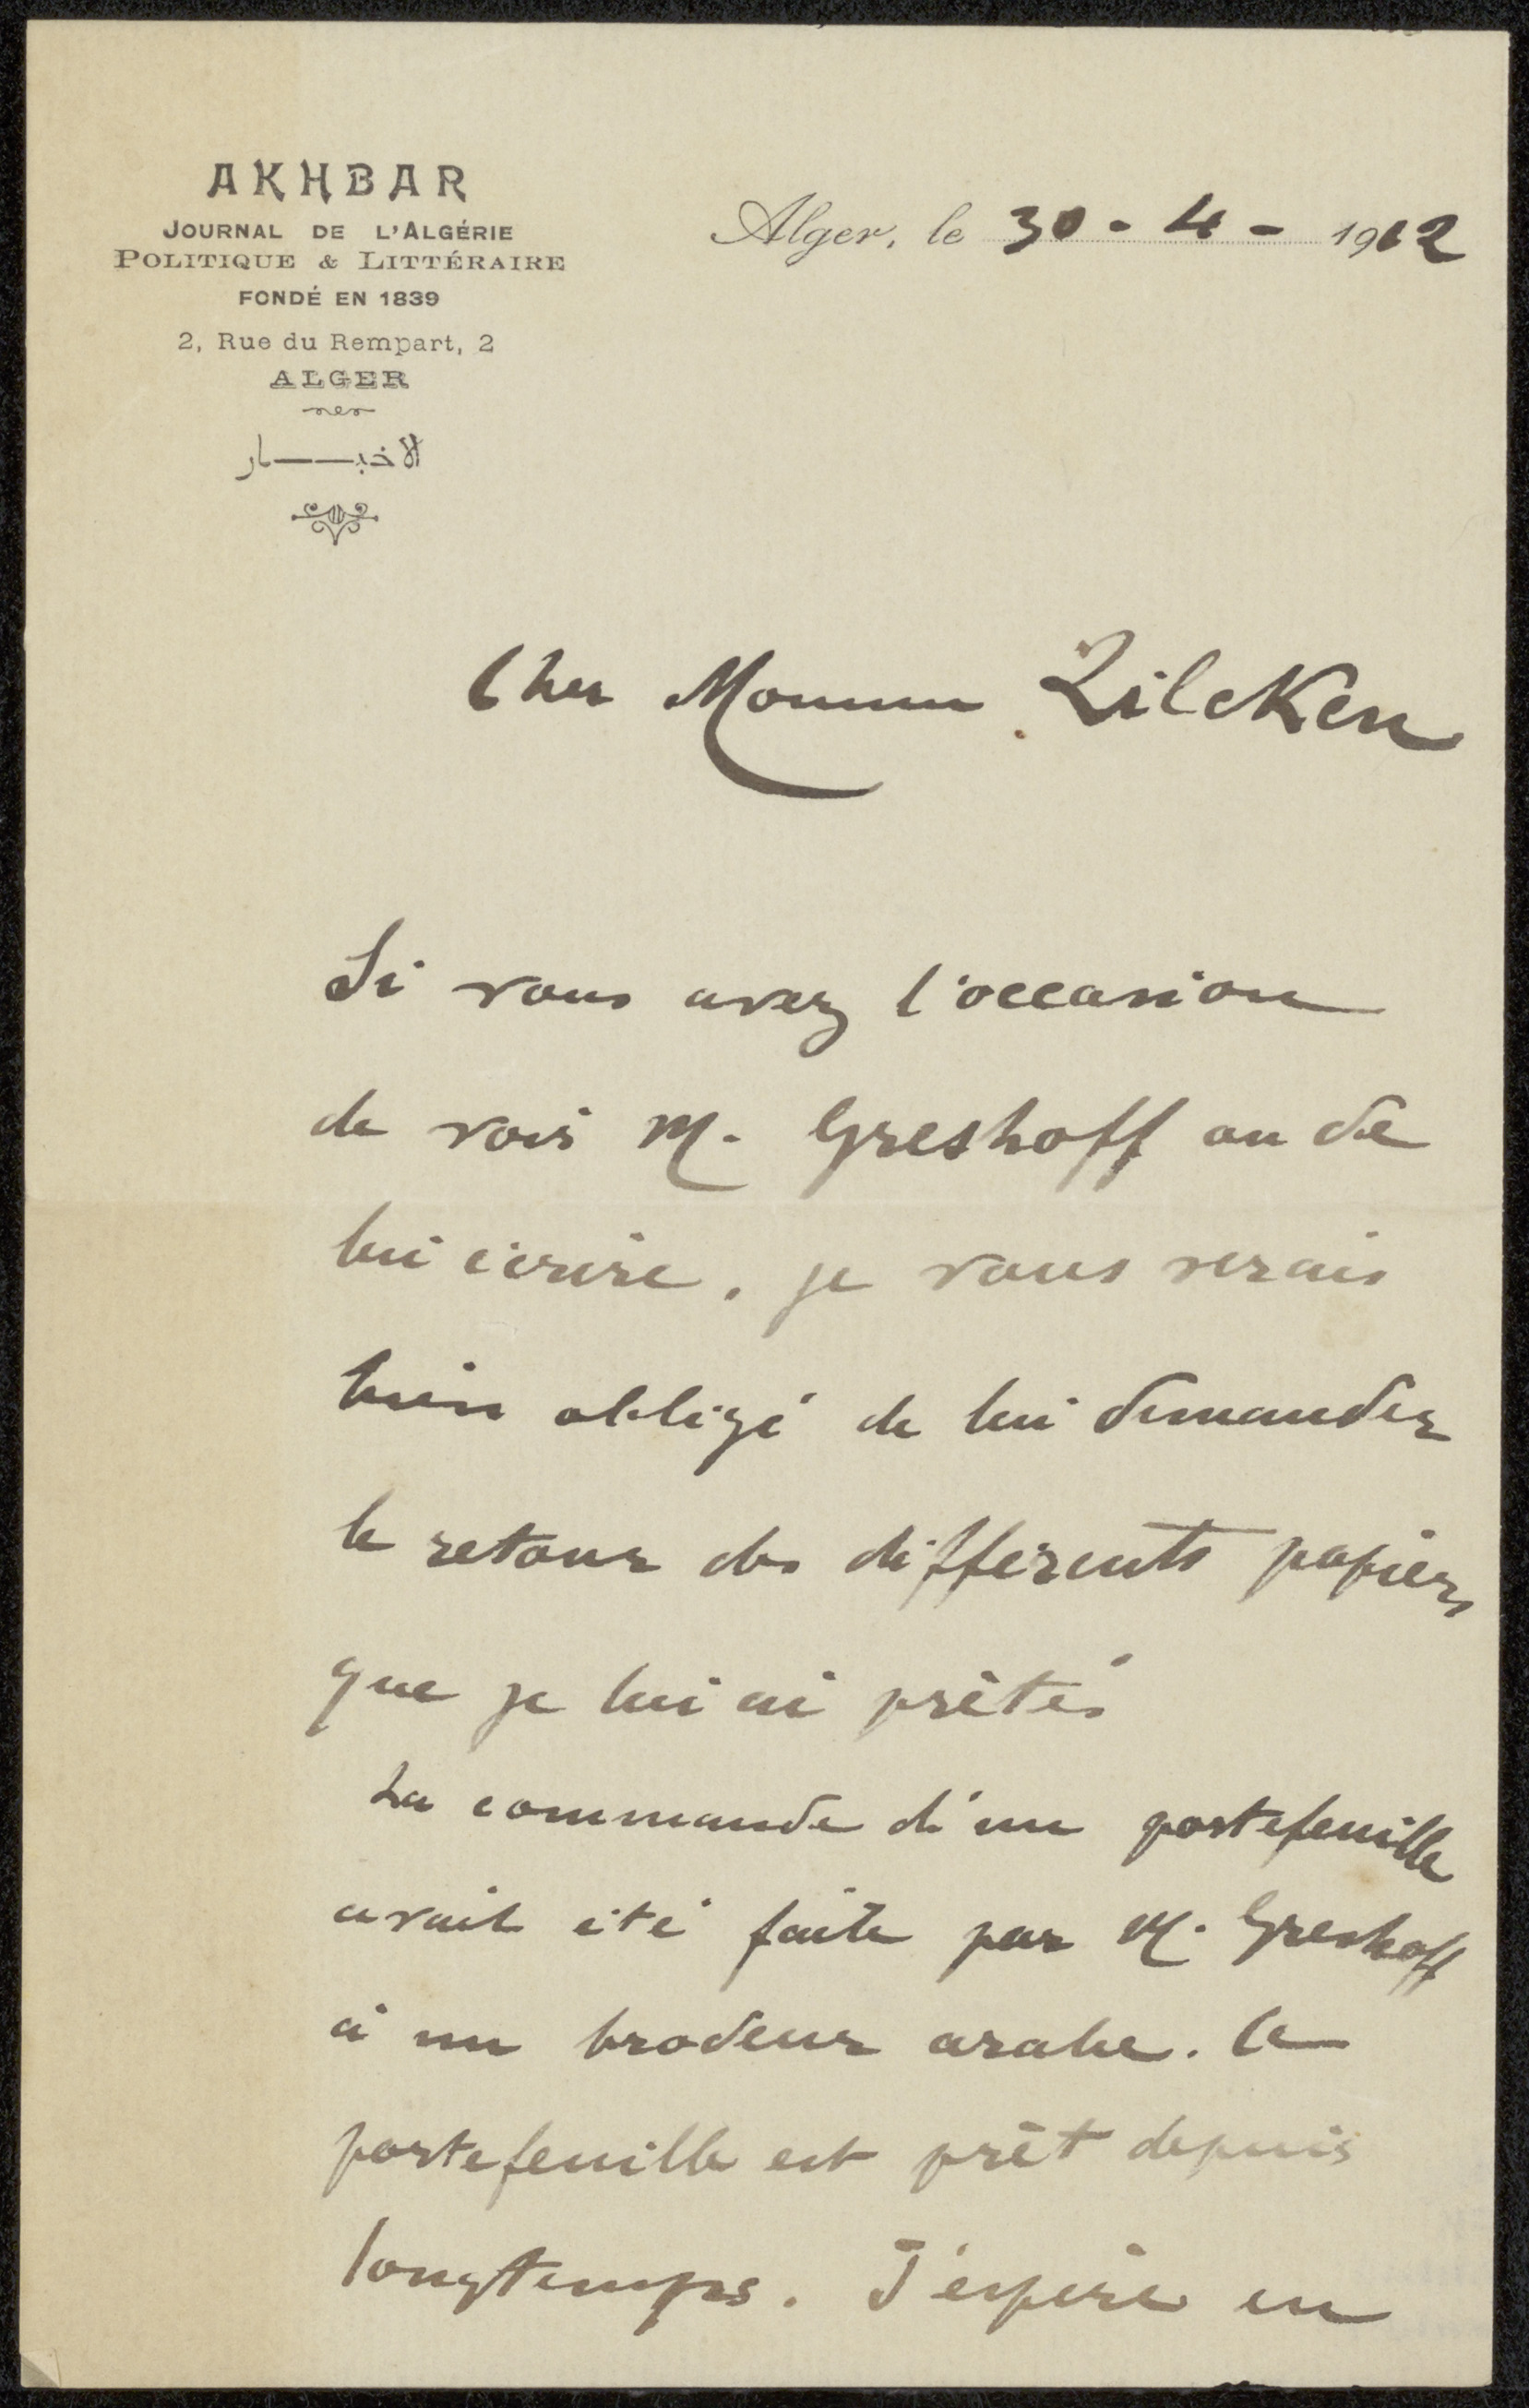 AKHBAR
JOURNAL DE L'ALGÉRIE
POLITIQUE & LITTÉRAIRE
FONDÉ EN 1839
2, Rue du Rempart, 2
ALGER
الاخبـــار
Alger, le 30 - 4 - 1912
Cher Monsieur Zilcken
Si vous avez l'occasion
de voir M. Greshoff ou de
lui écrire, je vous serais
bien obligé de lui demander
le retour des différents papiers
que je lui ai prêtés
La commande d'un portefeuille
avait été faite par M. Greshoff
à un brodeur arabe. Ce
portefeuille est prêt depuis
longtemps. J'espère en